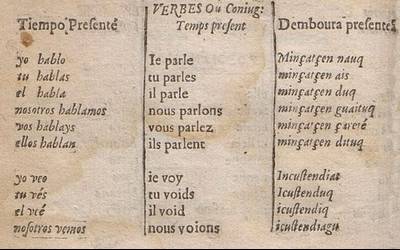 VERBES Ou Coniug:
Tiempo Presente Temps present Demboura presente
yo hablo Ie parle Minçatçen nauq
tu hablas tu parles minçatçen ais
el habla il parle minçatçen duq
nosotros hablamos nous parlons minçatçen guaituq
vos hablays vous parlez minçatçen çareré
ellos hablan ils parlent minçatçen dituq
yo veo ie voy Incustendiat
tu vés tu voids Icustenduq
el veé il void icustenduq
nosotros vemos nous voions icustendiagu